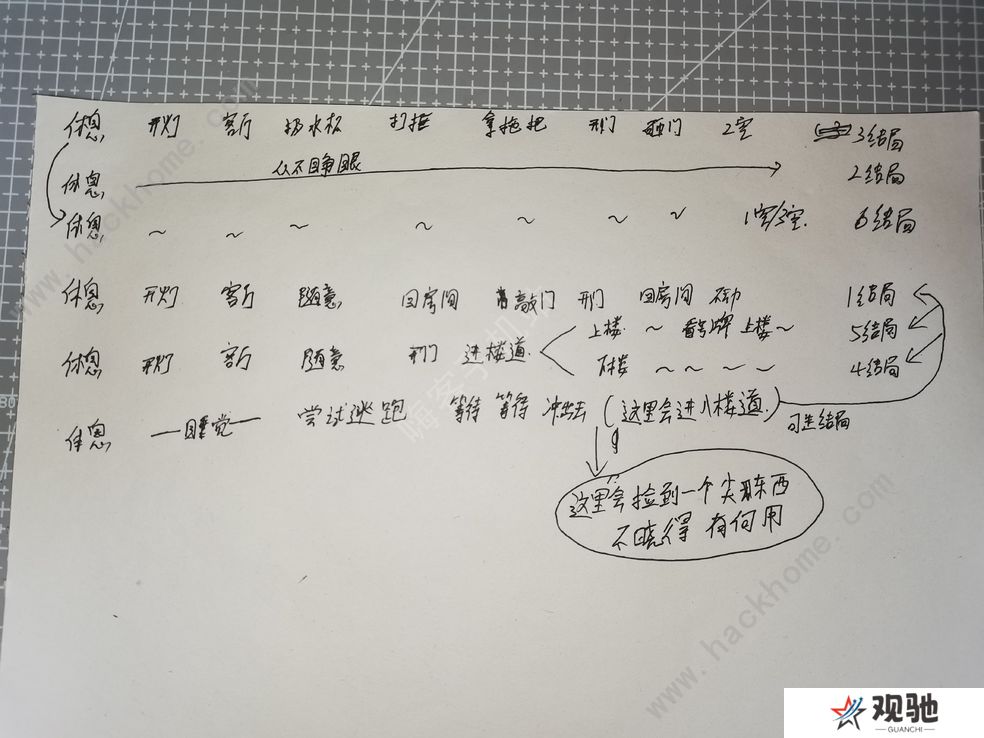 休息 开灯 客厅 打拒 拿拖把 开门 2宝 3结局
休息 从不睁眼 2结局
休息 ~ ~ ~ ~ ~ ~ ~ 6结局
休息 开灯 客厅 随意 回房间 敲门 开门 回房间 1结局
上楼 ~ 看号牌 上楼~ 5结局
休息 开灯 客厅 随意 开门 进楼道
下楼 ~ ~ ~ ~ 4结局
休息 —睡觉— 尝试逃跑 等待 等待 冲出去 (这里会进入楼道) 可走结局
这里会捡到一个尖东西
不晓得 有何用
www.hackhome.com
嗨客手机站
www.hackhome.com
观驰
GUANCHI